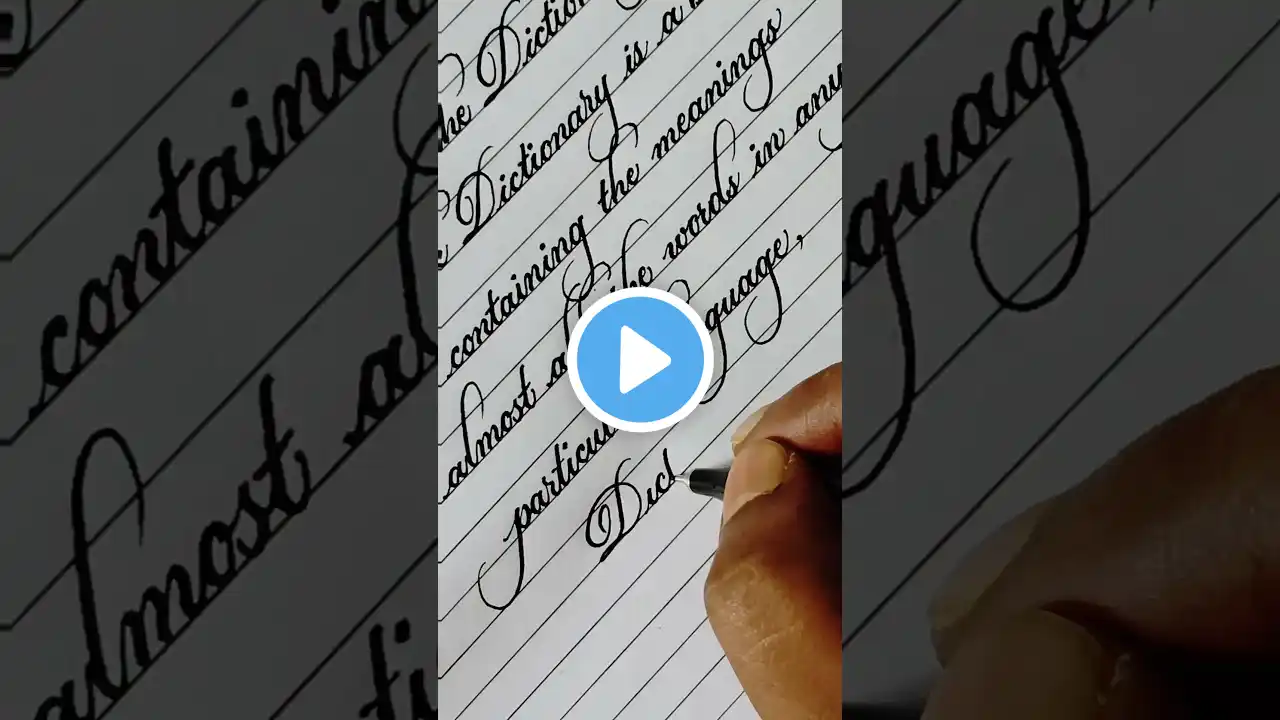 the Dictionary
Dictionary is a
containing the meanings
almost all the words in any
particular language,
Dict